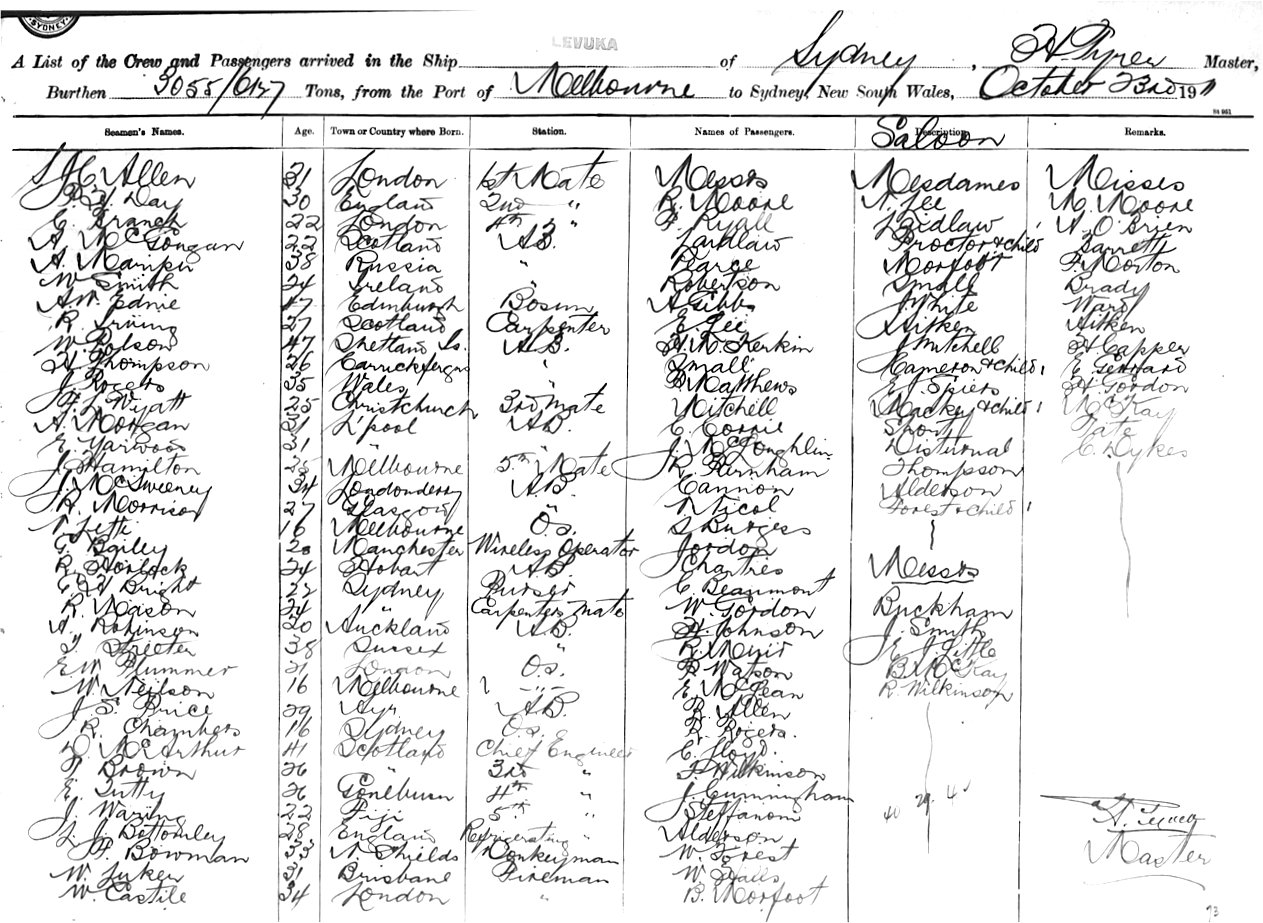 SYDNEY
LEVUKA
A List of the Crew and Passengers arrived in the Ship of Sydney, H Tyrer Master,
Burthen 3055/6127 Tons, from the Port of Melbourne to Sydney, New South Wales, October 23rd 1911
Seamen's Names. Age. Town or Country where Born. Station. Names of Passengers. Description. Remarks.
Saloon
Allen 31 London 1st Mate Messrs Mesdames Misses
Day 30 England 2nd " R. Moore Lee M. Moore
E. Branch 22 London 4th " Ryall Laidlaw A O'Brien
A. McGougan 22 Scotland AB. Laidlaw Proctor & child 1 Barrett
A. 38 Russia " Pearce Morfoot F. Morton
W. Smith 24 Ireland " Robertson Small Brady
A.W. Ednie 47 Edinburgh Bosun A Gibbs J. White Ward
R. Irving 27 Scotland Carpenter E. Lee Aitken Aitken
W. Polson 47 Shetland Is. AB. Mitchell H Capper
H. Thompson 26 Carrickfergus " Small Cameron & child 1 E Gerrard
J. Rogers 35 Wales " Matthews E. Spiers H Gordon
F. L. Wyatt 25 Christchurch 3rd Mate Mitchell Mackey & child 1 McKay
A. Morgan 31 L'pool AB. C. Corrie Short Tate
E. Yarwood 31 " " J. McLoughlin Disturnal C. Dykes
J. Hamilton 28 Melbourne 5th Mate Thompson
J. McSweeney 34 Londonderry AB. Cannon Alderson
H. Morrison 27 Glasgow " Nicol Forest & child 1
16 Melbourne O.s. S Burgess
E. Bailey 20 Manchester Wireless Operator Jordon
R. Horlock 24 Hobart AB Charters Messrs
E. H Bright 22 Sydney Purser C. Beaumont
R. Mason 24 " Carpenters Mate W. Gordon Buckham
A. Robinson 20 Auckland AB. H. Johnson J. Smith
Streeter 38 Sussex " R. Muir E J Little
E.W. Plummer 21 London O.s. P Watson B. McKay
W. Neilson 16 Melbourne " E. McLean R. Wilkinson
J. S. Price 29 Ayr AB. R. Allen
R. Chambers 16 Sydney O.s. R. Rogers.
D. McArthur 41 Scotland Chief Engineer C. Lloyd.
P. Brown 26 " 3rd " F. Wilkinson
E. Tutty 26 Goulburn 4th " J. Cunningham
J. Waring 22 Fiji 5th " Steffanoni 40 29. 4
J. Bottomley 28 England Refrigerating " Alderson H. Tyrer
P. Bowman 33 N. Shields Donkeyman W. Forest Master
W. Luker 31 Brisbane Fireman W Halls
W. Castile 34 London " B. Morfoot
73